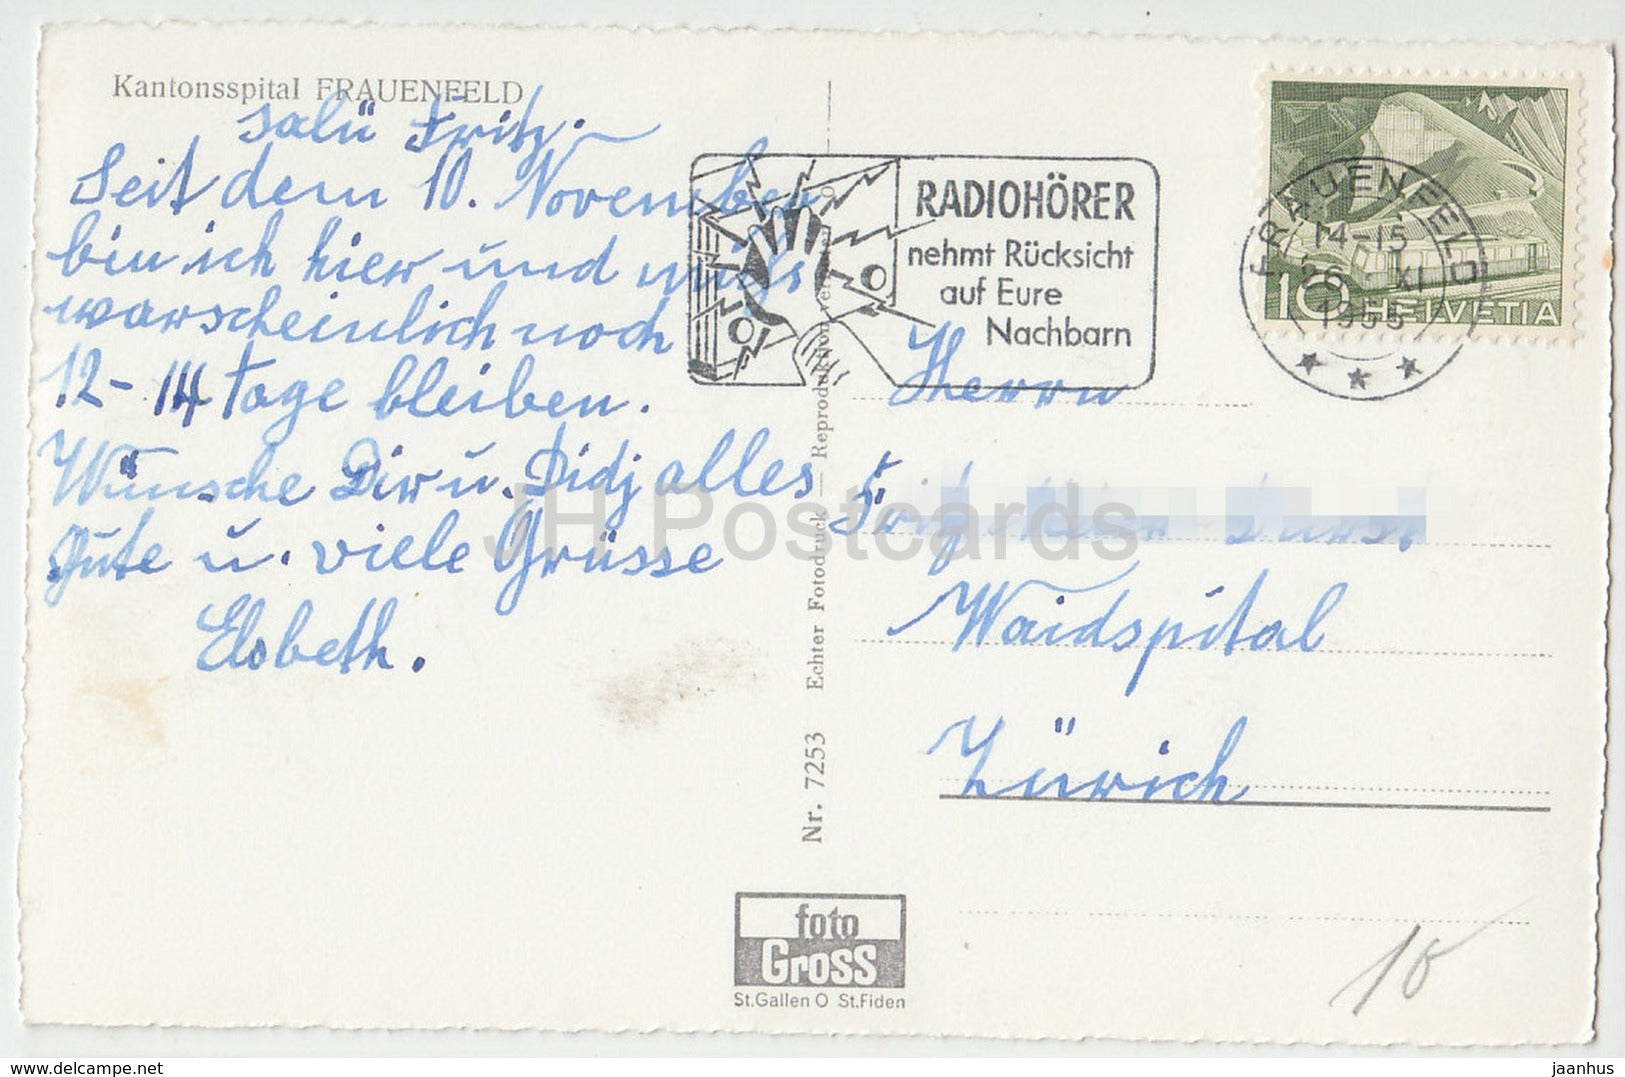 Kantonsspital FRAUENFELD
Salü Fritz.
Seit dem 10. November
bin ich hier und muss
warscheinlich noch
12-14 Tage bleiben.
Wünsche Dir u. Didj alles
Gute u. viele Grüsse
Elsbeth.
RADIOHÖRER
nehmt Rücksicht
auf Eure
Nachbarn
FRAUENFELD
14-15
26. XI.
1955
10 HELVETIA
Herrn
Fritz
Waidspital
Zürich
Nr. 7253 Echter Fotodruck — Reproduktion
foto
Gross
St.Gallen O St.Fiden
JH Postcards
www.delcampe.net
jaanhus